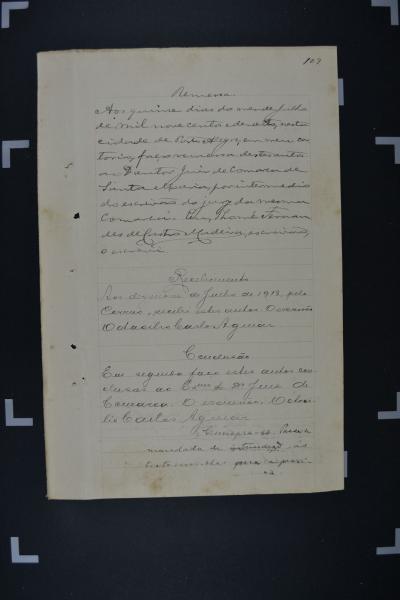 109
Remessa
Aos quinze dias do mez de Julho
de mil nove centos e desoito, nesta
cidade de Porto Alegre, em meu car
torio, faço remessa destes autos
ao Doutor Juiz de Comarca de
Santa Maria, por intermedio
do escrivão do jury da mesma
Comarca. Eu, Thomé Fernan
des de Castro Madeira, escrivão,
o escrevi
Recebimento
Aos de Julho de 1918, pelo
Correio, recebi estes autos. O escrivão
Octacilio Carlos Aguiar
Conclusão
Em seguida faço estes autos con
clusos ao Exmo Sr Dr Juiz de
Comarca. O escrivão, Octaci
lio Carlos Aguiar
Cumpra-se. Passe
mandado de intimação ás
testemunhas para